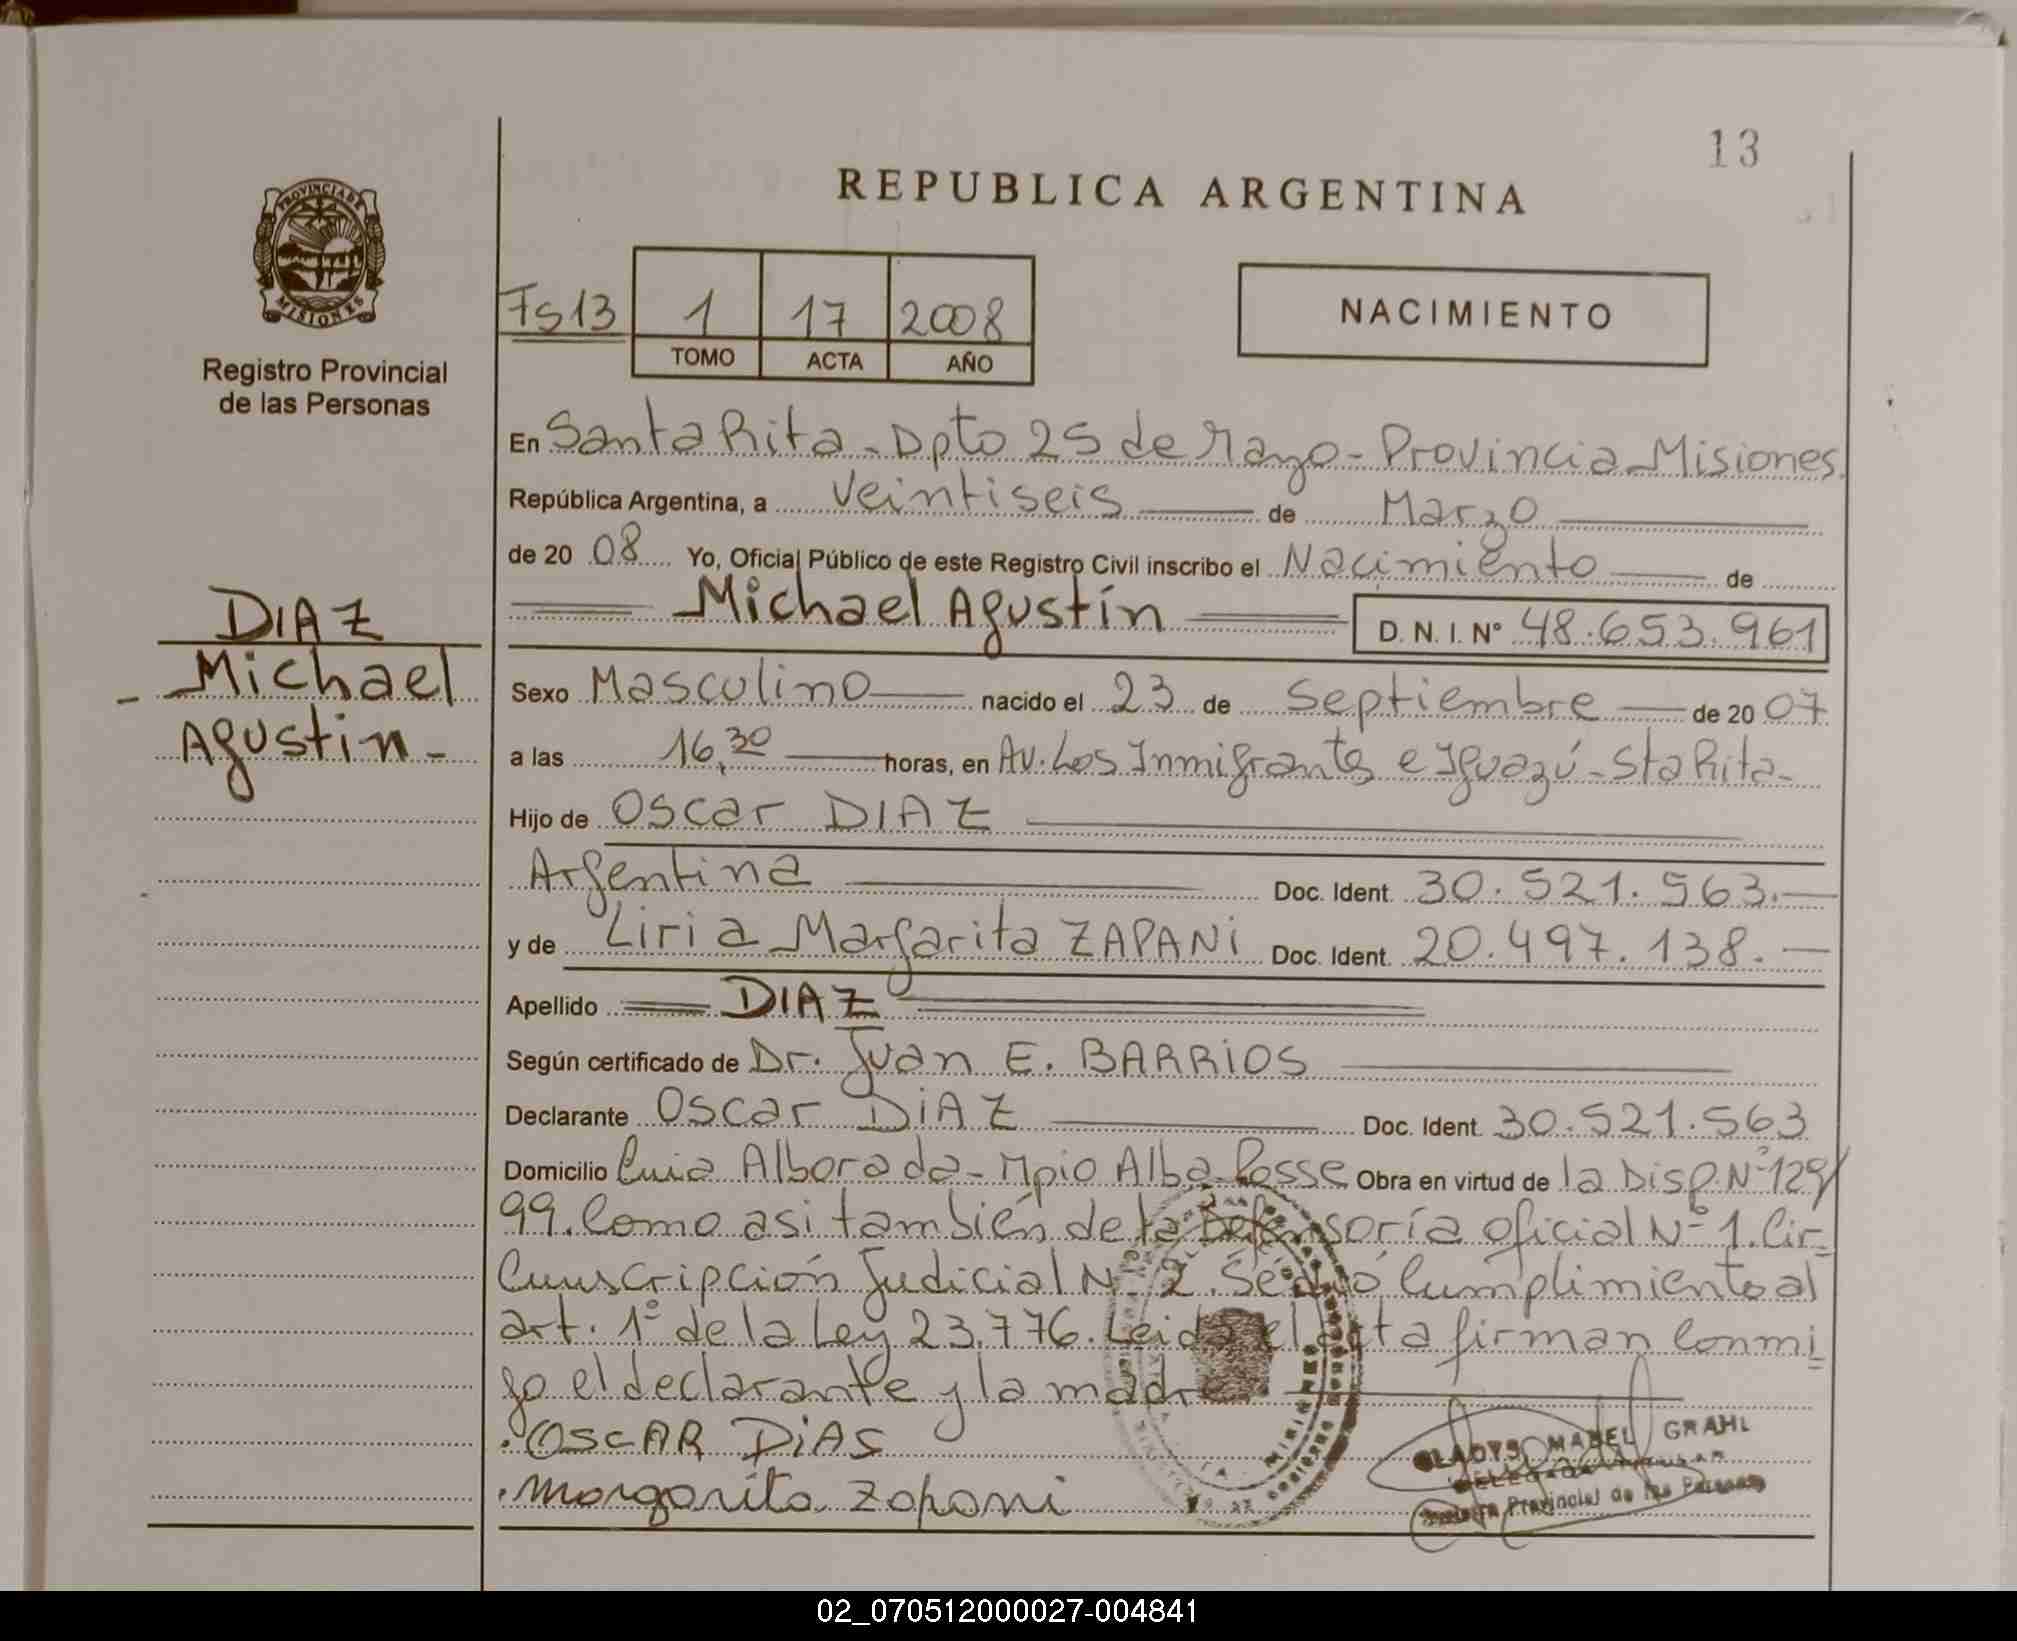 13
REPUBLICA ARGENTINA
PROVINCIA DE
MISIONES
Registro Provincial
de las Personas
Fs13 1 17 2008
TOMO ACTA AÑO
NACIMIENTO
En Santa Rita - Dpto 25 de Mayo - Provincia Misiones
República Argentina, a veintiseis de Marzo
de 20 08 Yo, Oficial Público de este Registro Civil inscribo el Nacimiento de
Michael Agustín D. N. I. Nº 48.653.961
DIAZ
Michael
Agustin
Sexo Masculino nacido el 23 de Septiembre de 20 07
a las 16,30 horas, en Av. Los Inmigrantes e Iguazú - Sta Rita -
Hijo de Oscar DIAZ
Argentina Doc. Ident. 30.521.563.
y de Liria Margarita ZAPANI Doc. Ident. 20.497.138.
Apellido DIAZ
Según certificado de Dr. Juan E. BARRIOS
Declarante Oscar DIAZ Doc. Ident. 30.521.563
Domicilio Alborada - Mpio Alba Posse Obra en virtud de la Disp. Nº 129/
99. Como asi también de la Defensoría oficial Nº 1. Cir-
cunscripción Judicial Nº 2. Se dió cumplimiento al
art. 1º de la Ley 23.776. Leida el acta firman conmi
go el declarante y la madre
OSCAR DIAS
Margarita Zapani
GLADYS MABEL GRAHL
Provincial de las Personas
02_070512000027-004841